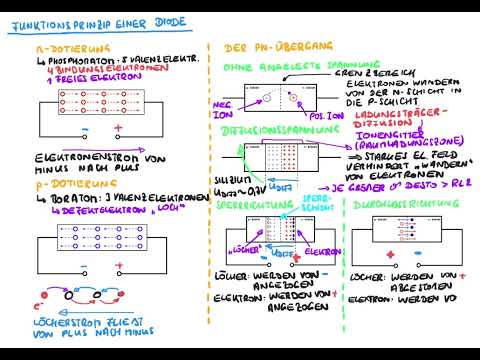 FUNKTIONSPRINZIP EINER DIODE
n-DOTIERUNG
↳ PHOSPHORATOM: 5 VALENZELEKTR.
4 BINDUNGSELEKTRONEN
1 FREIES ELEKTRON
- +
ELEKTRONENSTROM VON
MINUS NACH PLUS
p-DOTIERUNG
↳ BORATOM: 3 VALENZELEKTRONEN
↳ DEFEKTELEKTRON „LOCH"
- +
e⁻
LÖCHERSTROM FLIEẞT
VON PLUS NACH MINUS
DER PN-ÜBERGANG
OHNE ANGELEGTE SPANNUNG
GRENZBEREICH
ELEKTRONEN WANDERN
VON DER N-SCHICHT IN
DIE P-SCHICHT
NEG. ION
POS. ION
LADUNGSTRÄGER-
DIFFUSION
DIFFUSIONSSPANNUNG
IONENGITTER
(RAUMLADUNGSZONE)
⇒ STARKES EL. FELD
VERHINDERT „WANDERN"
VON ELEKTRONEN
SILIZIUM
UDIFF ~ 0,7V
UDIFF
→ JE GRÖẞER DESTO > RLZ
SPERRICHTUNG
SPERR-
SCHICHT
„LÖCHER"
UDIFF
ELEKTRON
- +
LÖCHER: WERDEN VON -
ANGEZOGEN
ELEKTRON: WERDEN VON +
ANGEZOGEN
DURCHLASSRICHTUNG
+ -
LÖCHER: WERDEN VON +
ABGESTOẞEN
ELEKTRON: WERDEN VO